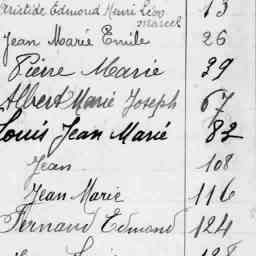 Aristide Edmond Henri Léon 13
Marcel
Jean Marie Emile 26
Pierre Marie 39
Albert Marie Joseph 67
Louis Jean Marie 82
Jean 108
Jean Marie 116
Fernand Edmond 124
128